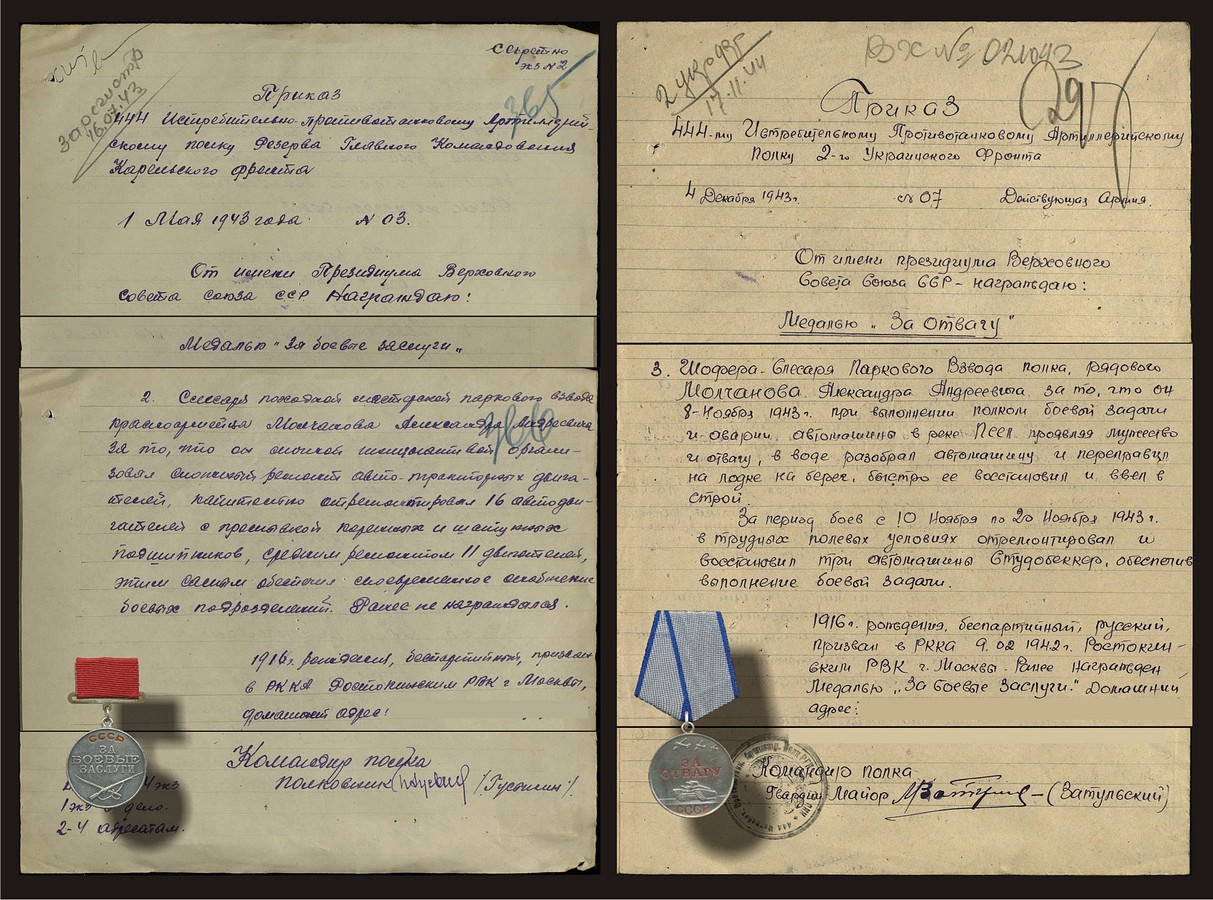 Секретно
экз N 2
365
Приказ
444 Истребительно-противотанковому Артиллерий-
скому полку Резерва Главного Командования
Карельского фронта
1 Мая 1943 года N 03.
От имени Президиума Верховного
Совета Союза ССР Награждаю:
Медалью "За боевые заслуги"
366
2. Слесаря походной мастерской паркового взвода
красноармейца Молчанова Александра Андреевича
За то, что он
зовал ремонт авто-тракторных двига-
телей, капитально отремонтировал 16 автодви-
гателей с коренных и шатунных
подшипников, средним ремонтом 11 двигателей,
этим самым обеспечил своевременное снабжение
боевых подразделений. Ранее не награждался.
1916 г. рождения, беспартийный, призван
в РККА Ростокинским РВК г Москвы,
домашний адрес:
Командир полка
полковник /Гусынин/.
4 экз
1 экз дело.
2-4 адресатам.
СССР
ЗА
БОЕВЫЕ
ЗАСЛУГИ
2 укр
17.11.44
Вх № 021043
297
Приказ
444-му Истребительному Противотанковому Артиллерийскому
Полку 2-го Украинского Фронта
4 Декабря 1943 г. № 07 Действующая Армия.
От имени президиума Верховного
Совета Союза ССР - награждаю:
Медалью "За Отвагу"
3. Шофера-Слесаря Паркового Взвода полка, рядового
Молчанова Александра Андреевича за то, что он
8-Ноября 1943 г. при выполнении полком боевой задачи
и аварии автомашины в реке Псел проявляя мужество
и отвагу, в воде разобрал автомашину и переправил
на лодке на берег, быстро ее восстановил и ввел в
строй.
За период боев с 10 Ноября по 20 Ноября 1943 г.
в трудных полевых условиях отремонтировал и
восстановил три автомашины Студобеккер, обеспечив
выполнение боевой задачи.
1916 г. рождения, беспартийный, русский,
призван в РККА 9.02 1942 г. Ростокин-
ским РВК г. Москвы. Ранее награжден
Медалью "За боевые Заслуги." Домашний
адрес:
ЗА
ОТВАГУ
СССР
Командир полка
Гвардии Майор -(Затульский)